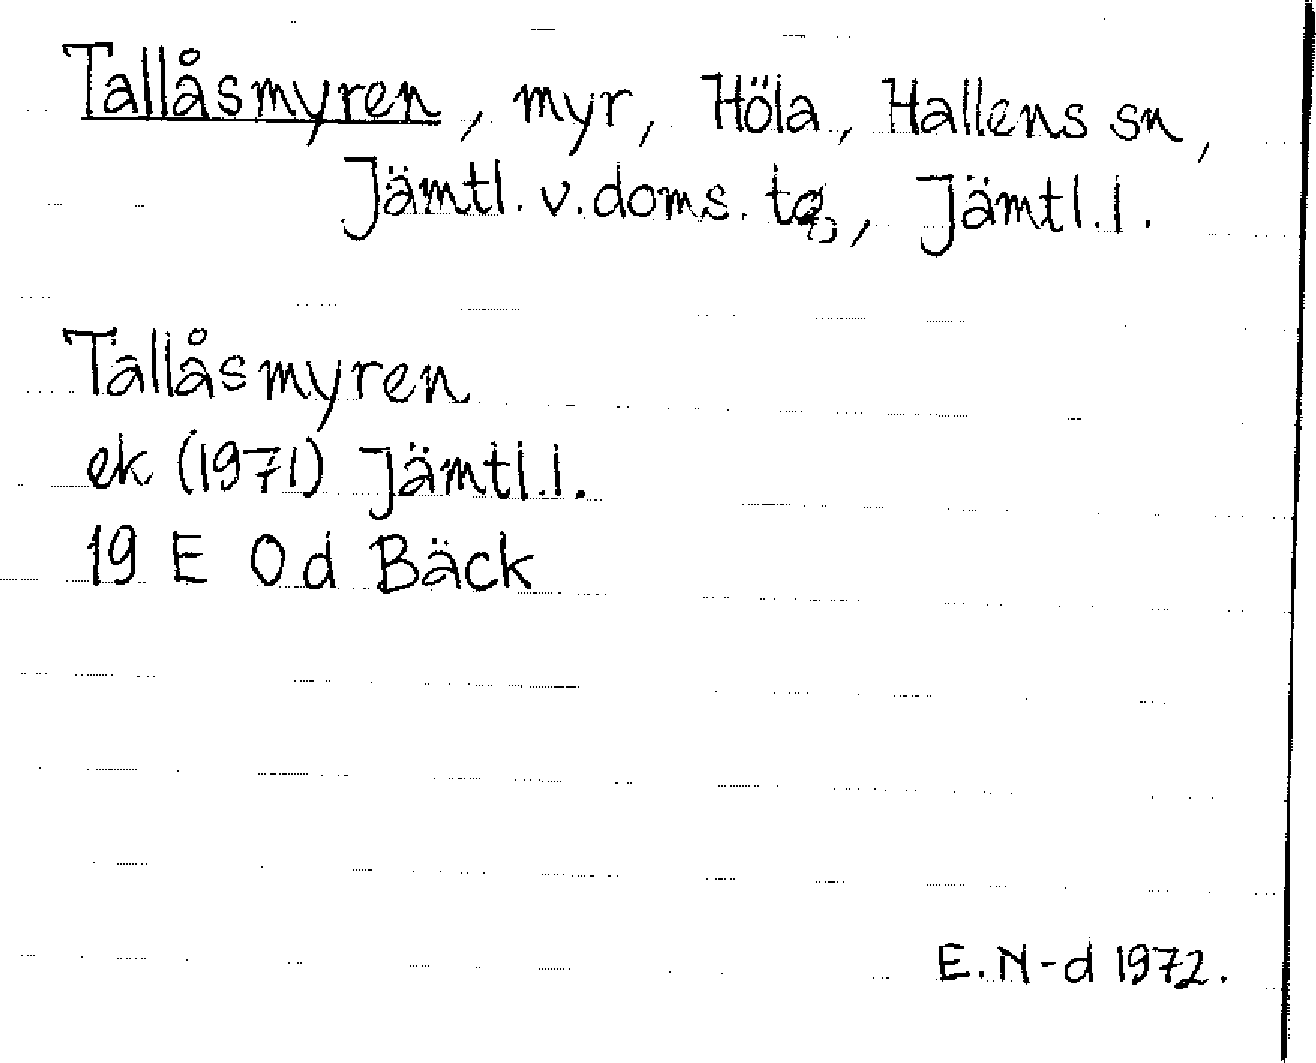 Tallåsmyren, myr, Höla, Hallens sn,
Jämtl. v. doms. tg, Jämtl. l.
Tallåsmyren
ek (1971) Jämtl. l.
19 E 0 d Bäck
E. N-d 1972.